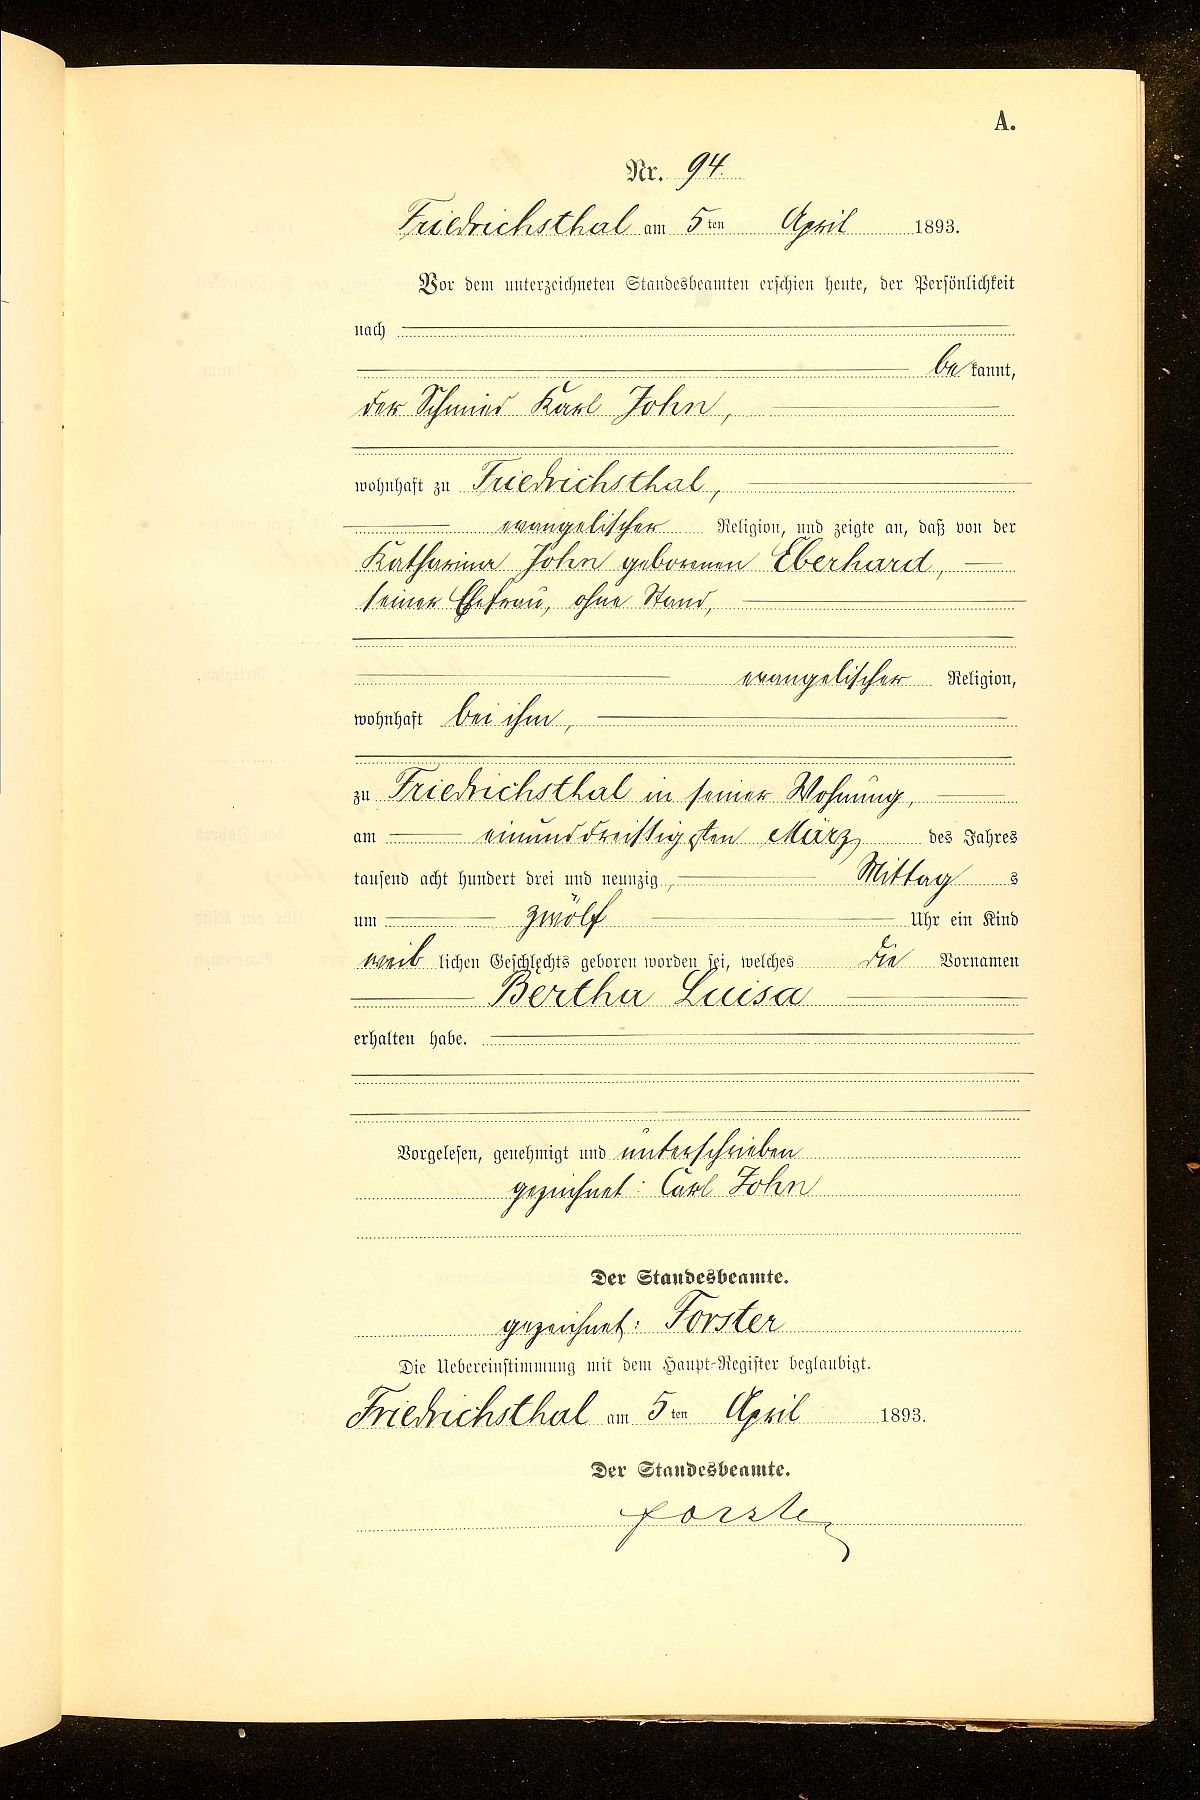 A.
Nr. 94.
Friedrichsthal am 5ten April 1893.
Vor dem unterzeichneten Standesbeamten erschien heute, der Persönlichkeit
nach
be kannt,
der Schmied Karl John,
wohnhaft zu Friedrichsthal,
evangelischer Religion, und zeigte an, daß von der
Katharina John geborenen Eberhard,
seiner Ehefrau, ohne Stand,
evangelischer Religion,
wohnhaft bei ihm,
zu Friedrichsthal in seiner Wohnung,
am einunddreißigsten März des Jahres
tausend acht hundert drei und neunzig, Mittag s
um zwölf Uhr ein Kind
weib lichen Geschlechts geboren worden sei, welches die Vornamen
Bertha Luisa
erhalten habe.
Vorgelesen, genehmigt und unterschrieben
gezeichnet: Carl John
Der Standesbeamte.
gezeichnet: Forster
Die Uebereinstimmung mit dem Haupt-Register beglaubigt.
Friedrichsthal am 5ten April 1893.
Der Standesbeamte.
Forster